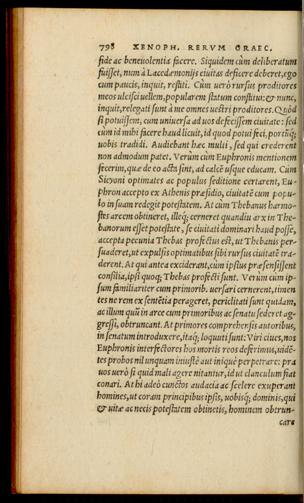 798 XENOPH. RERVM GRAEC.
fide ac beneuolentia facere. Siquidem cùm deliberatum
fuisset, num à Lacedæmonijs ciuitas deficere deberet, ego
cum paucis, inquit, restiti. Cùm uerò rursus proditores
meos ulcisci uellem, popularem statum constitui: & nunc,
inquit, relegati sunt à me omnes uestri proditores. Quòd
si potuissem, cum uniuersa ad uos defecissem ciuitate: sed
cùm id mihi facere haud licuit, id quod potui feci, portūq́;
uobis tradidi. Audiebant hæc multi, sed qui crederent
non admodum patet. Verùm cùm Euphronis mentionem
fecerim, quæ de eo acta sint, ad calcē usque educam. Cùm
Sicyoni optimates ac populus seditione certarent, Eu-
phron accepto ex Athenis præsidio, ciuitatē cum popu-
lo in suam redegit potestatem. At cùm Thebanus harmo-
stes arcem obtineret, illeq́; cerneret quandiu arx in The-
banorum esset potestate, se ciuitati dominari haud posse,
accepta pecunia Thebas profectus est, ut Thebanis per-
suaderet, ut expulsis optimatibus sibi rursus ciuitatē tra-
derent. At qui antea exciderant, cùm ipsius præsensissent
consilia, ipsi quoq; Thebas profecti sunt. Verùm cùm ip-
sum familiariter cum primorib. uersari cernerent, timen
tes ne rem ex sentētia perageret, periclitati sunt quidam,
ac illum quū in arce cum primoribus ac senatu sederet ag-
gressi, obtruncant. At primores comprehensis autoribus,
in senatum introduxere, itaq́; loquuti sunt: Viri ciues, nos
Euphronis interfectores hos mortis reos deferimus, uidē-
tes probos nil unquam iniustè aut iniquè perpetrare: pra
uos uerò si quid mali agere nitantur, id ut clanculum fiat
conari. At hi adeò cunctos audacia ac scelere exuperant
homines, ut coram principibus ipsis, uobisq́; dominis, qui
& uitæ ac necis potestatem obtinetis, hominem obtrun-
care